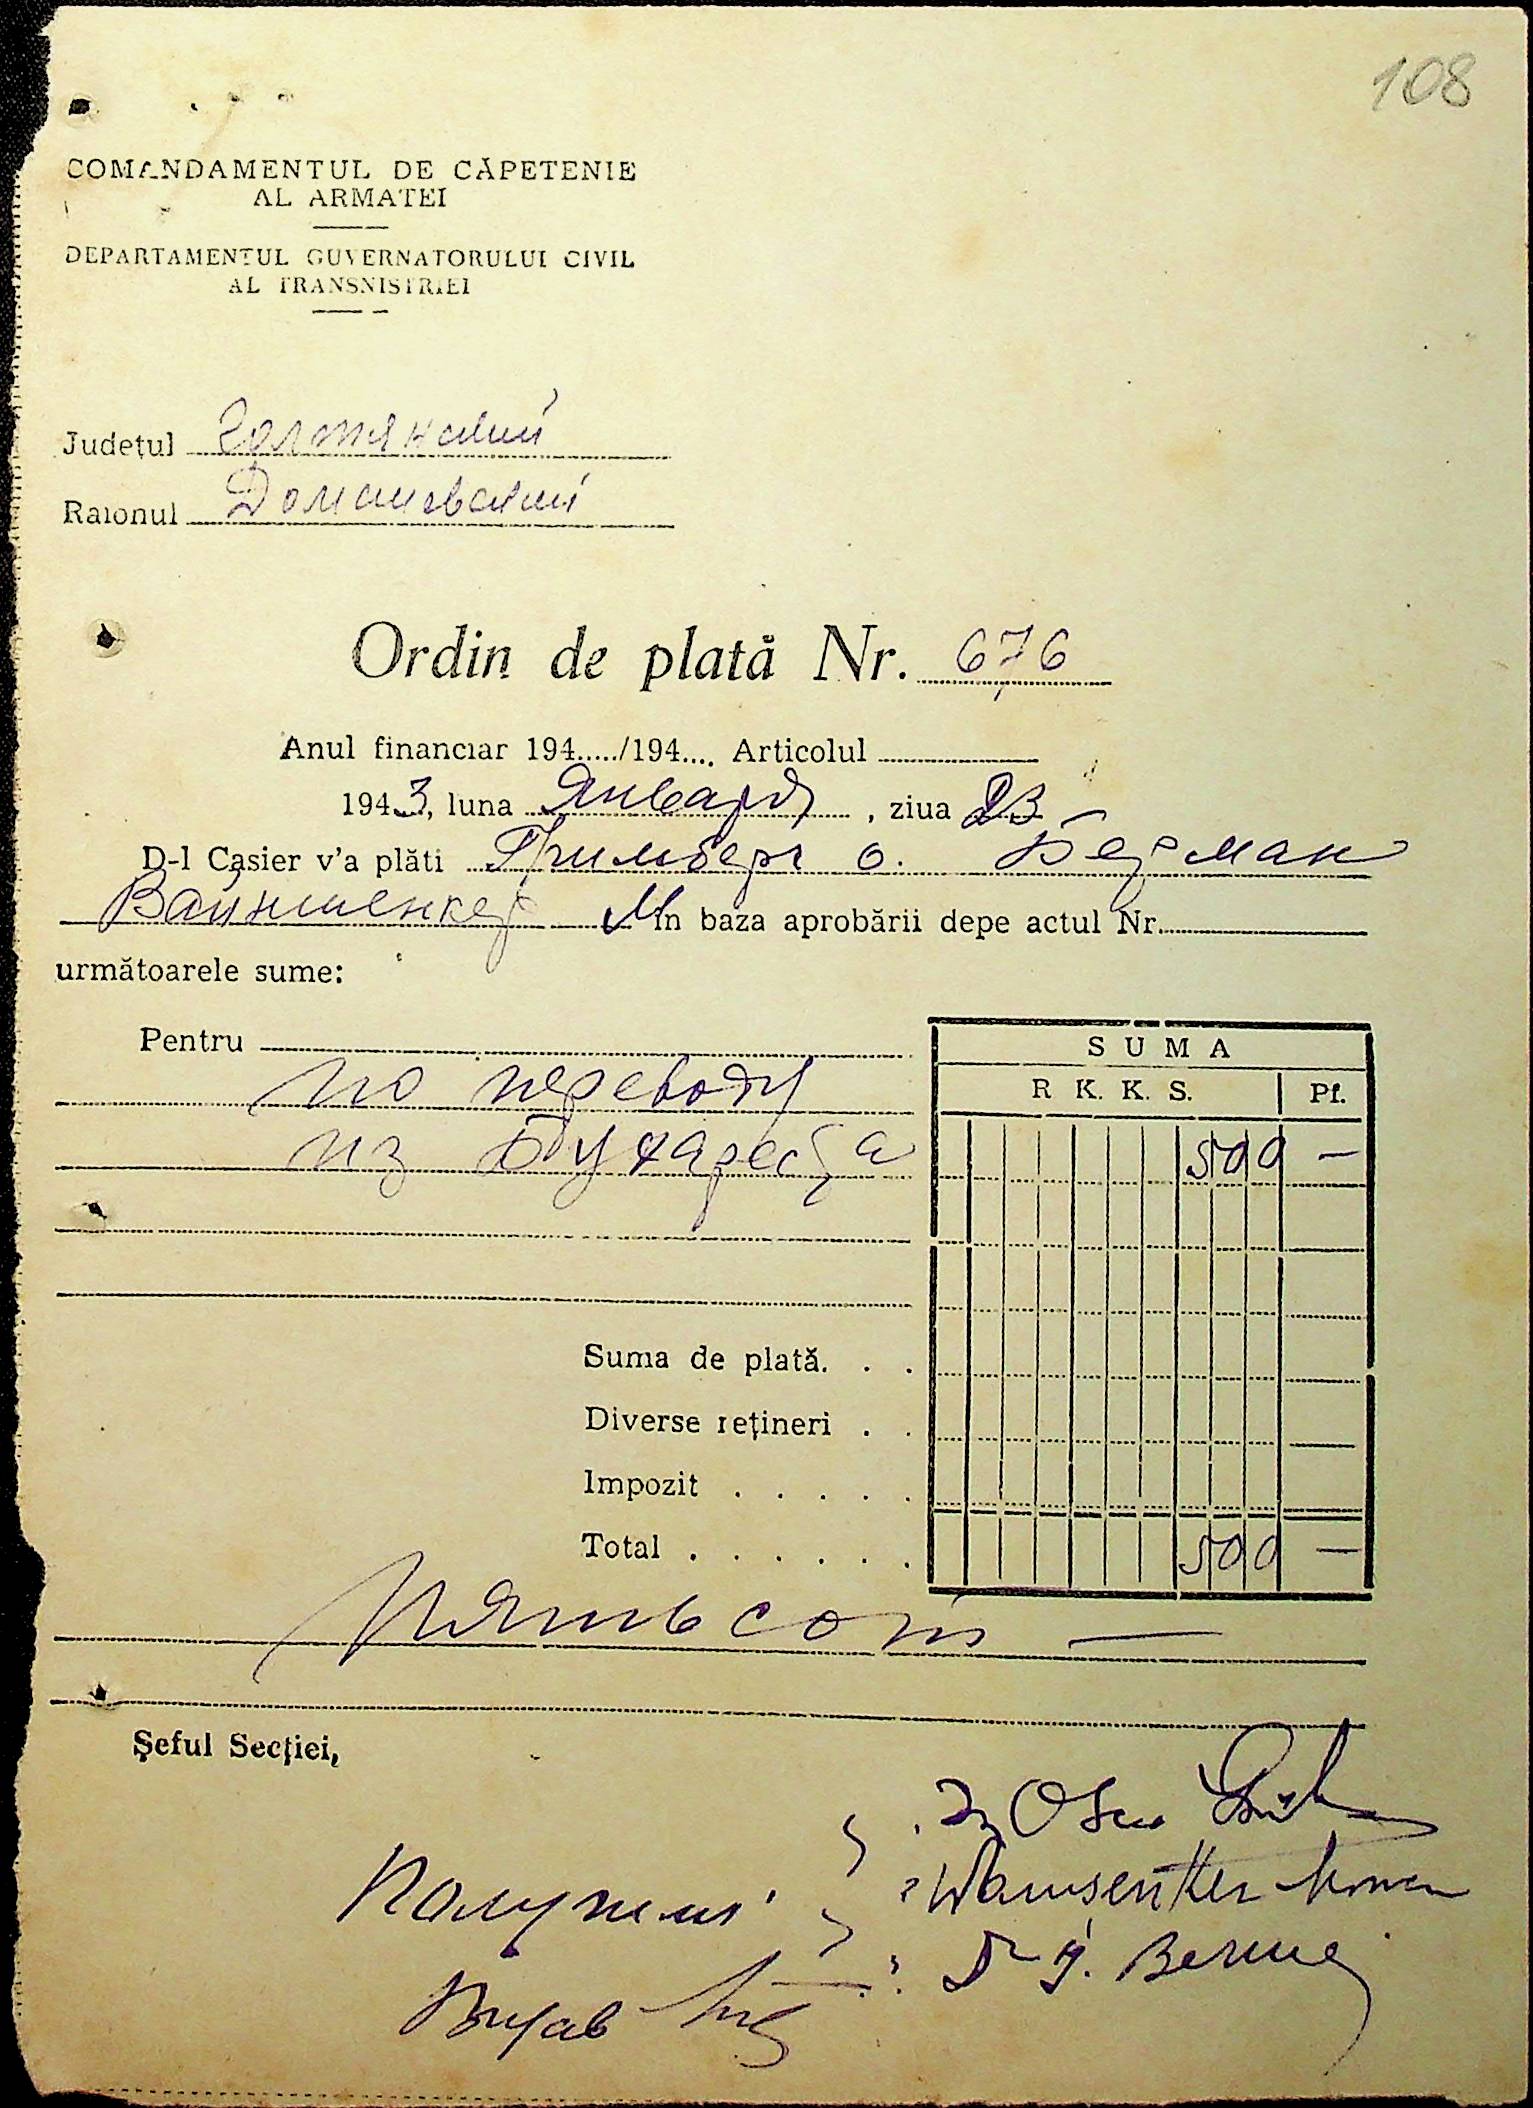 108
COMANDAMENTUL DE CĂPETENIE
AL ARMATEI
DEPARTAMENTUL GUVERNATORULUI CIVIL
AL TRANSNISTRIEI
Județul Голтянский
Raionul Доманевский
Ordin de plată Nr. 676
Anul financiar 194...../194.... Articolul
1943, luna Января, ziua 23
D-l Casier v'a plăti Гримберг О. Берман
Вайншенкер М în baza aprobării depe actul Nr.
următoarele sume:
Pentru
SUMA
по переводу
R K. K. S. Pf.
из Бухареста 500 —
Suma de plată. . .
Diverse rețineri . .
Impozit . . . . .
Total . . . . . . 500 —
Пятьсот —
Șeful Secției,
Получили